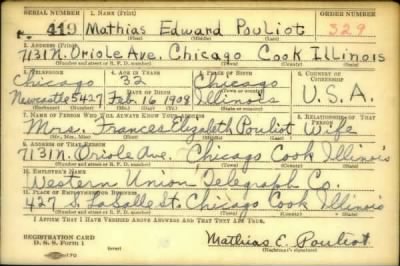 SERIAL NUMBER 1. NAME (Print) ORDER NUMBER
419 Mathias Edward Pouliot 329
(First) (Middle) (Last)
2. ADDRESS (Print)
7131 N. Oriole Ave. Chicago Cook Illinois
(Number and street or R. F. D. number) (Town) (County) (State)
3. TELEPHONE 4. AGE IN YEARS 5. PLACE OF BIRTH 6. COUNTRY OF CITIZENSHIP
Chicago 32 Chicago
DATE OF BIRTH
Newcastle 5427 Feb 16 1908 Illinois U.S.A.
(Exchange) (Number) (Mo.) (Day) (Yr.) (State or country)
7. NAME OF PERSON WHO WILL ALWAYS KNOW YOUR ADDRESS 8. RELATIONSHIP OF THAT PERSON
Mrs. Frances Elizabeth Pouliot Wife
(Mr., Mrs., Miss) (First) (Middle) (Last)
9. ADDRESS OF THAT PERSON
7131 N. Oriole Ave. Chicago Cook Illinois
(Number and street or R. F. D. number) (Town) (County) (State)
10. EMPLOYER'S NAME
Western Union Telegraph Co.
11. PLACE OF EMPLOYMENT OR BUSINESS
427 S. LaSalle St. Chicago Cook Illinois
(Number and street or R. F. D. number) (Town) (County) (State)
I AFFIRM THAT I HAVE VERIFIED ABOVE ANSWERS AND THAT THEY ARE TRUE.
REGISTRATION CARD
D. S. S. Form 1
Mathias E. Pouliot
(Registrant's signature)